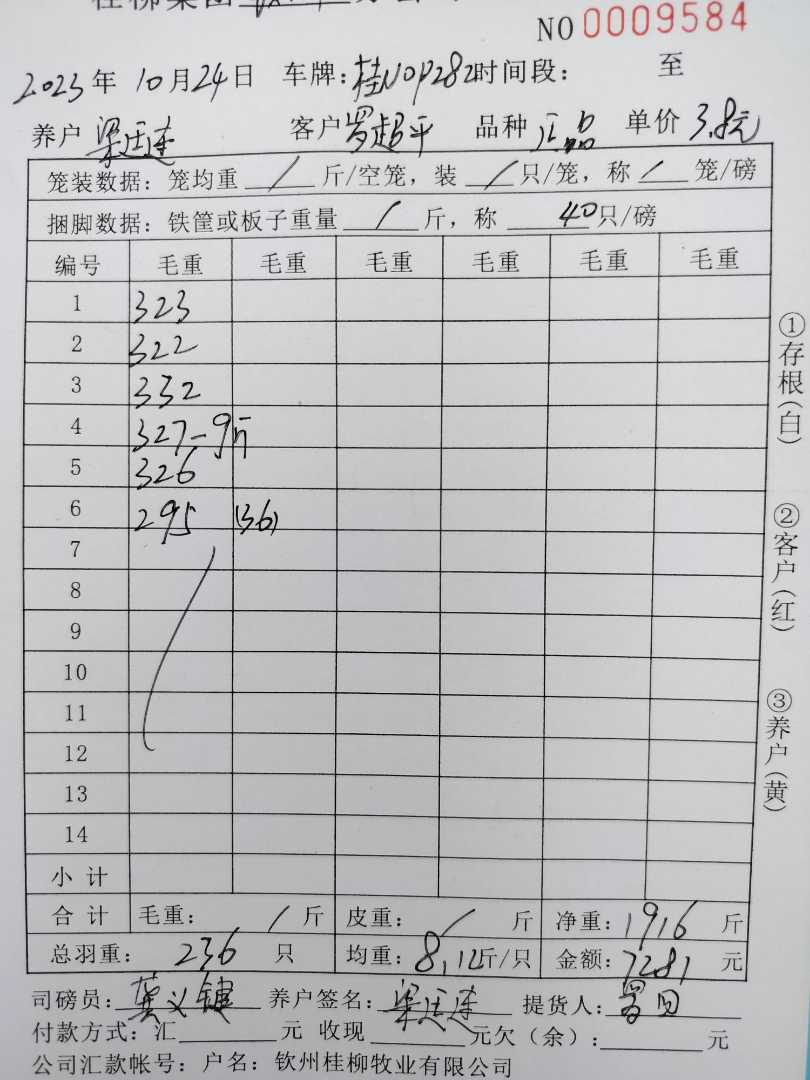 桂柳集团 分公司
NO 0009584
2023年10月24日 车牌:桂N0P282 时间段: 至
养户 梁廷连 客户 罗超平 品种 正品 单价 3.8元
笼装数据: 笼均重 / 斤/空笼, 装 / 只/笼, 称 / 笼/磅
捆脚数据: 铁筐或板子重量 / 斤, 称 40 只/磅
编号 毛重 毛重 毛重 毛重 毛重 毛重
1 323
2 322
3 332
4 327-9斤
5 326
6 295 (36)
7
8
9
10
11
12
13
14
小计
合计 毛重: / 斤 皮重: / 斤 净重: 1916 斤
总羽重: 236 只 均重: 8.12斤/只 金额: 7281 元
司磅员: 龚义键 养户签名: 梁廷连 提货人:
付款方式: 汇 元 收现 元欠(余): 元
公司汇款帐号: 户名: 钦州桂柳牧业有限公司
①存根(白)
②客户(红)
③养户(黄)